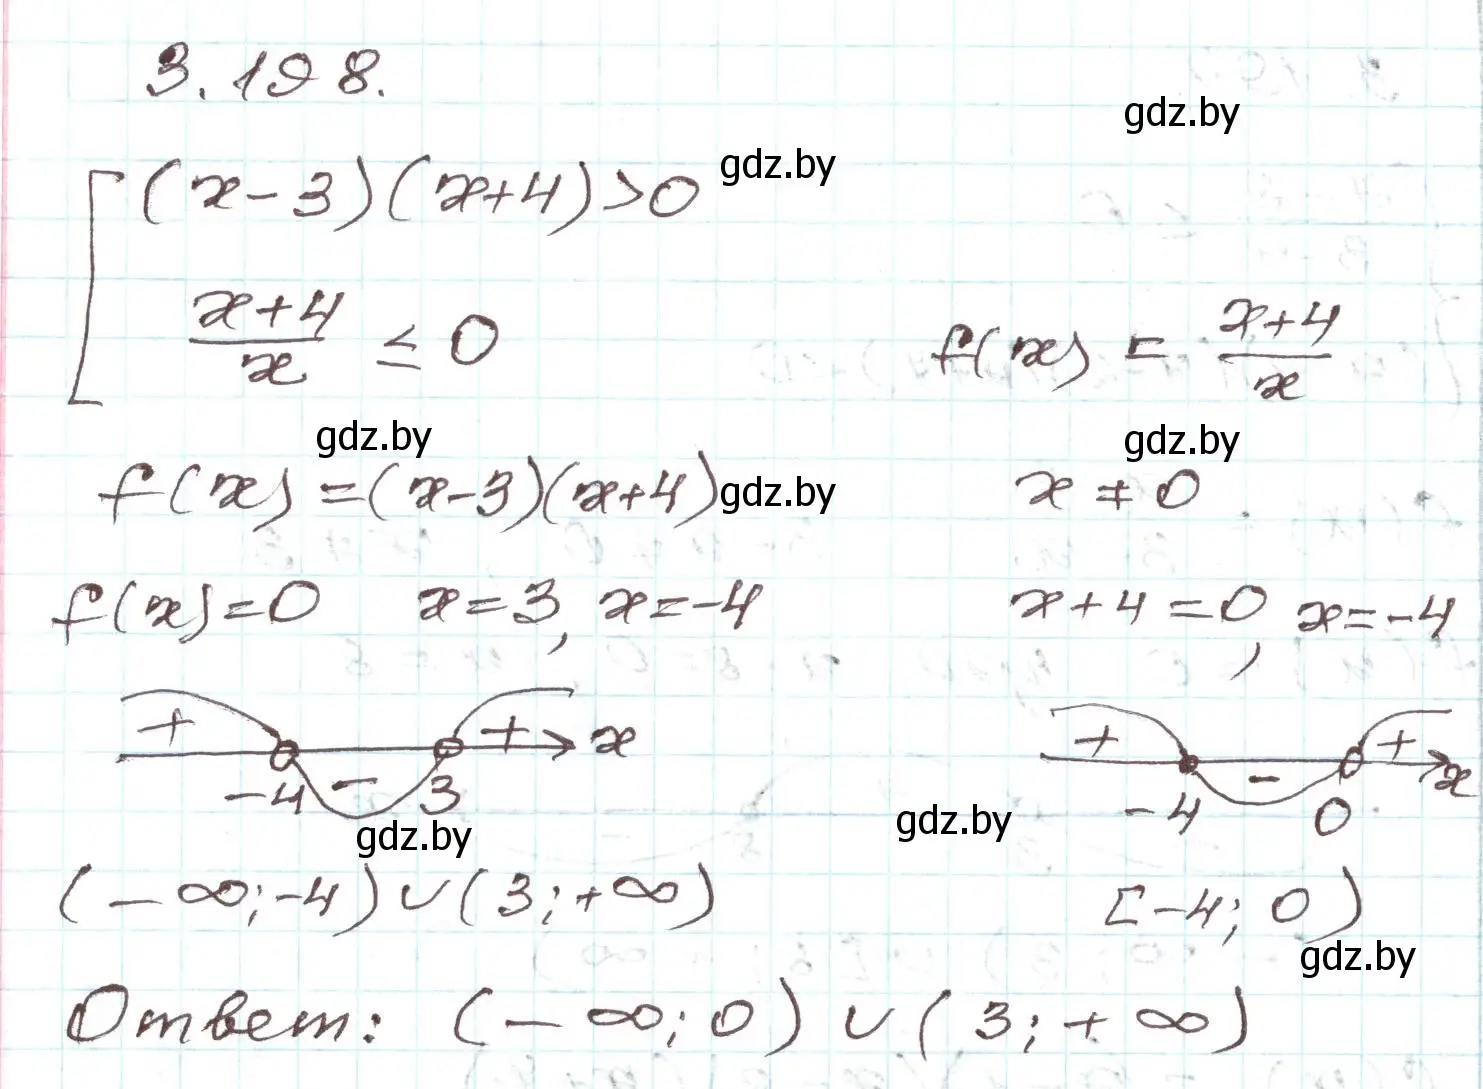 3.198.
gdz.by
(x-3)(x+4)>0
gdz.by
x+4
x
≤ 0
f(x) = 
x+4
x
gdz.by
gdz.by
f(x) = (x-3)(x+4)
gdz.by
x ≠ 0
f(x)=0 x=3, x=-4
x+4=0, x=-4
+ - + x
-4 3
+ - + x
-4 0
gdz.by
gdz.by
(-∞;-4)∪(3;+∞)
[-4; 0)
gdz.by
Ответ: (-∞;0)∪(3;+∞)